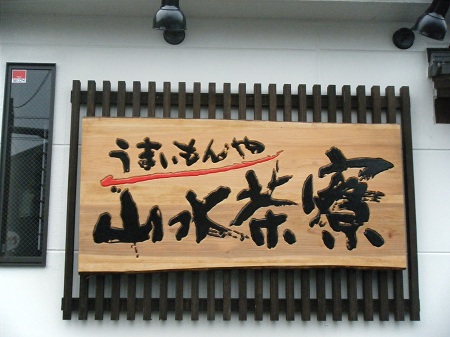 うまいもんや
山水茶寮